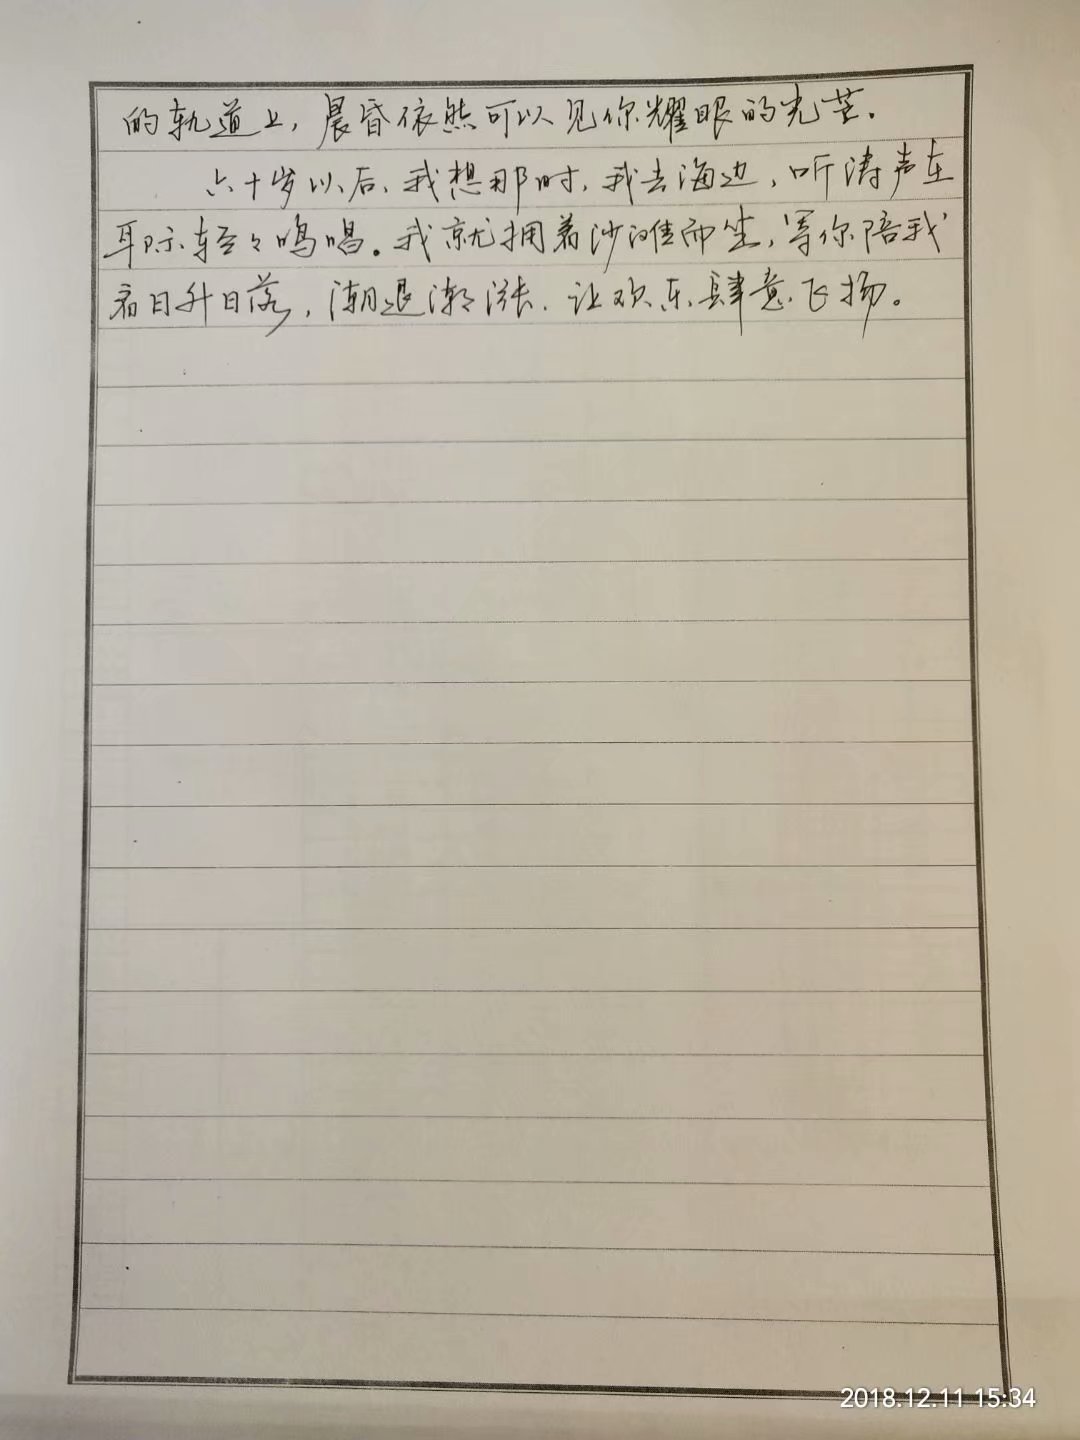 的轨道上，晨昏依然可以见你耀眼的光芒。
六十岁以后，我想那时，我去海边，听涛声在
耳际轻々鸣唱。我就拥着沙滩而坐，等你陪我
看日升日落，潮退潮涨，让欢乐肆意飞扬。
2018.12.11 15:34